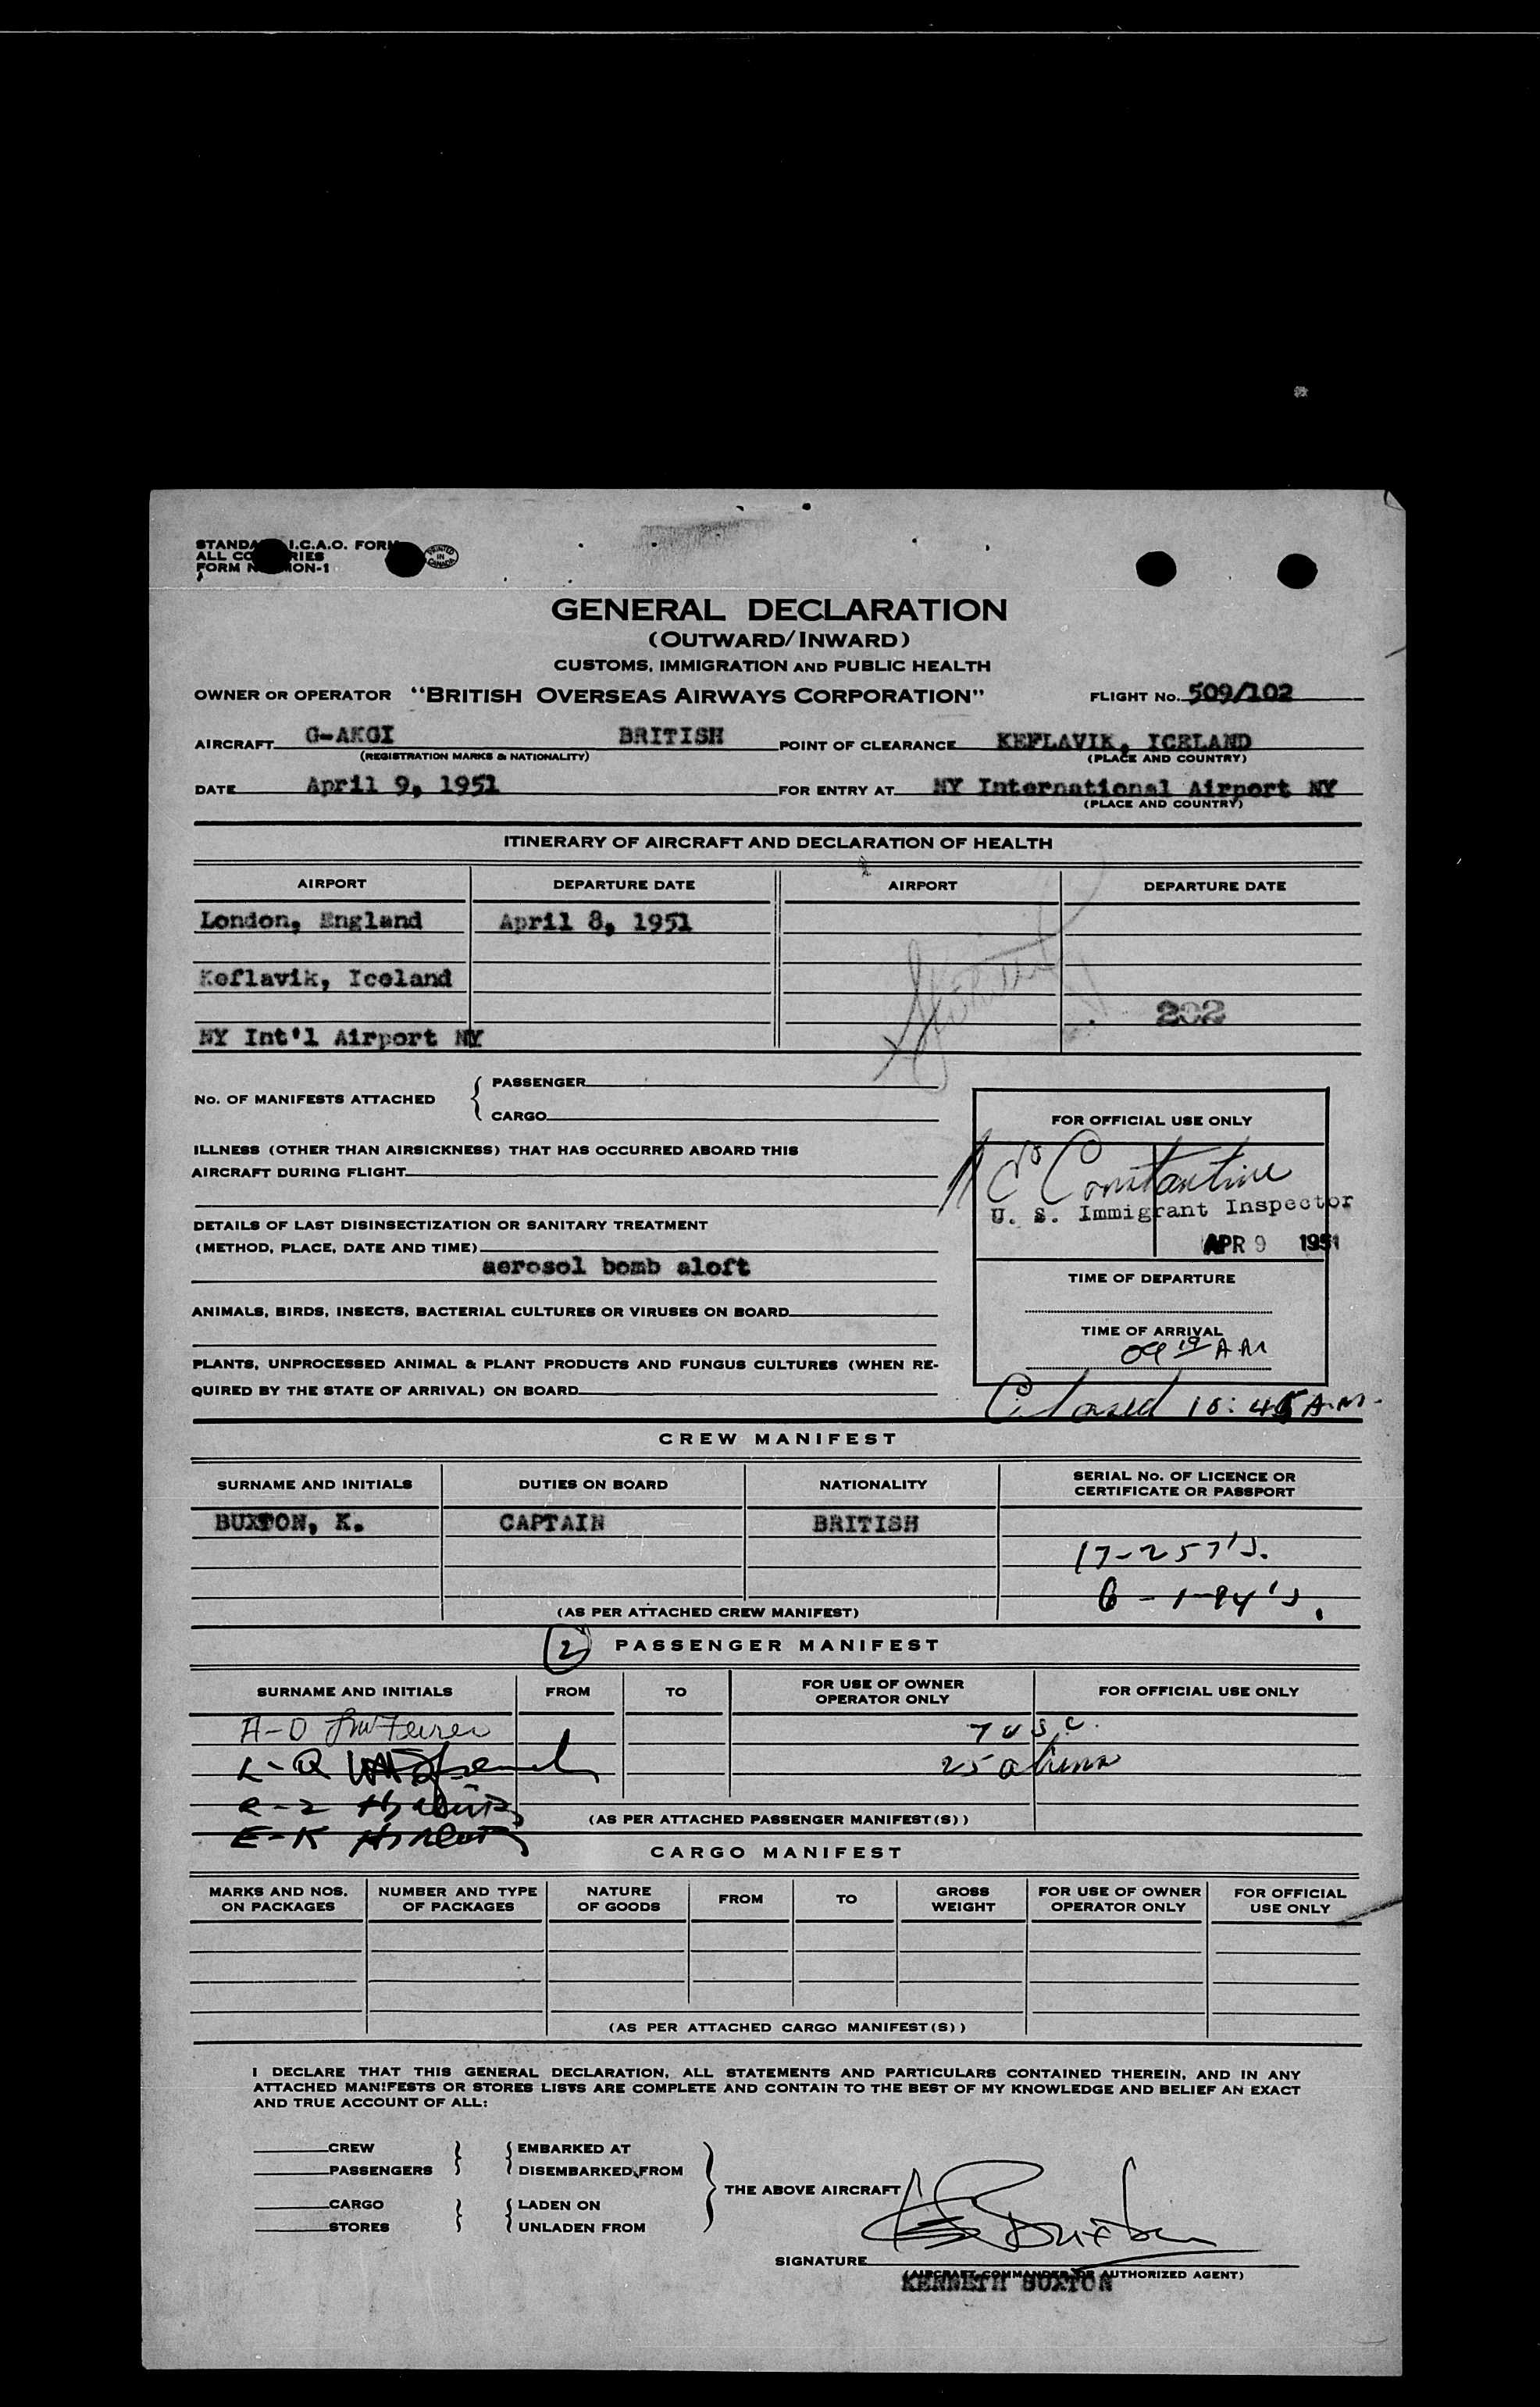 STANDA I.C.A.O. FORM
ALL CO RIES
FORM N ON-1
PRINTED IN CANADA
GENERAL DECLARATION
(OUTWARD/INWARD)
CUSTOMS, IMMIGRATION AND PUBLIC HEALTH
OWNER OR OPERATOR "BRITISH OVERSEAS AIRWAYS CORPORATION" FLIGHT NO. 509/102
AIRCRAFT G-AKGI BRITISH POINT OF CLEARANCE KEFLAVIK, ICELAND
(REGISTRATION MARKS & NATIONALITY) (PLACE AND COUNTRY)
DATE April 9, 1951 FOR ENTRY AT NY International Airport NY
(PLACE AND COUNTRY)
ITINERARY OF AIRCRAFT AND DECLARATION OF HEALTH
AIRPORT DEPARTURE DATE AIRPORT DEPARTURE DATE
London, England April 8, 1951
Keflavik, Iceland
202
NY Int'l Airport NY
NO. OF MANIFESTS ATTACHED { PASSENGER
CARGO
FOR OFFICIAL USE ONLY
ILLNESS (OTHER THAN AIRSICKNESS) THAT HAS OCCURRED ABOARD THIS
AIRCRAFT DURING FLIGHT
Constantine
U. S. Immigrant Inspector
APR 9 1951
DETAILS OF LAST DISINSECTIZATION OR SANITARY TREATMENT
(METHOD, PLACE, DATE AND TIME)
aerosol bomb aloft
TIME OF DEPARTURE
ANIMALS, BIRDS, INSECTS, BACTERIAL CULTURES OR VIRUSES ON BOARD
TIME OF ARRIVAL
09 19 AM
PLANTS, UNPROCESSED ANIMAL & PLANT PRODUCTS AND FUNGUS CULTURES (WHEN RE-
QUIRED BY THE STATE OF ARRIVAL) ON BOARD
Closed 10:45 A.M.
CREW MANIFEST
SURNAME AND INITIALS DUTIES ON BOARD NATIONALITY SERIAL NO. OF LICENCE OR
CERTIFICATE OR PASSPORT
BUXTON, K. CAPTAIN BRITISH
17-257's.
6-1-94's.
(AS PER ATTACHED CREW MANIFEST)
2 PASSENGER MANIFEST
SURNAME AND INITIALS FROM TO FOR USE OF OWNER
OPERATOR ONLY FOR OFFICIAL USE ONLY
A-D 7 USC.
L-Q 25 aliens
R-Z
(AS PER ATTACHED PASSENGER MANIFEST(S))
E-K
CARGO MANIFEST
MARKS AND NOS. ON PACKAGES NUMBER AND TYPE OF PACKAGES NATURE OF GOODS FROM TO GROSS WEIGHT FOR USE OF OWNER OPERATOR ONLY FOR OFFICIAL USE ONLY
(AS PER ATTACHED CARGO MANIFEST(S))
I DECLARE THAT THIS GENERAL DECLARATION, ALL STATEMENTS AND PARTICULARS CONTAINED THEREIN, AND IN ANY
ATTACHED MANIFESTS OR STORES LISTS ARE COMPLETE AND CONTAIN TO THE BEST OF MY KNOWLEDGE AND BELIEF AN EXACT
AND TRUE ACCOUNT OF ALL:
CREW } { EMBARKED AT
PASSENGERS } { DISEMBARKED FROM
THE ABOVE AIRCRAFT
CARGO } { LADEN ON
STORES } { UNLADEN FROM
SIGNATURE K Buxton
(AIRCRAFT COMMANDER OR AUTHORIZED AGENT)
KENNETH BUXTON